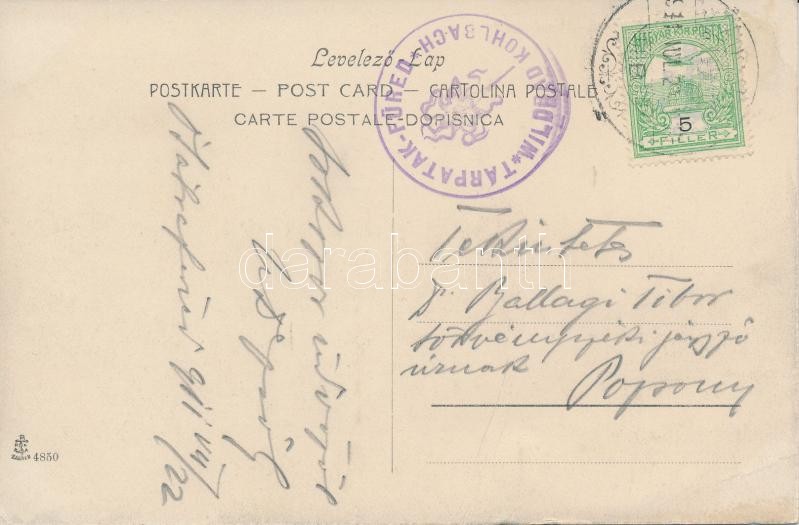 Levelező Lap
POSTKARTE — POST CARD — CARTOLINA POSTALE
CARTE POSTALE-DOPISNICA
TÁRPATAK-FÜRED * WILDBAD KOHLBACH *
MAGYAR KIR. POSTA
5
FILLÉR
Tekintetes
Dr. Ballagi Tibor
törvényszéki jegyző
úrnak
Pozsony
üdvözöl
911 VII/22
4850
darabanth